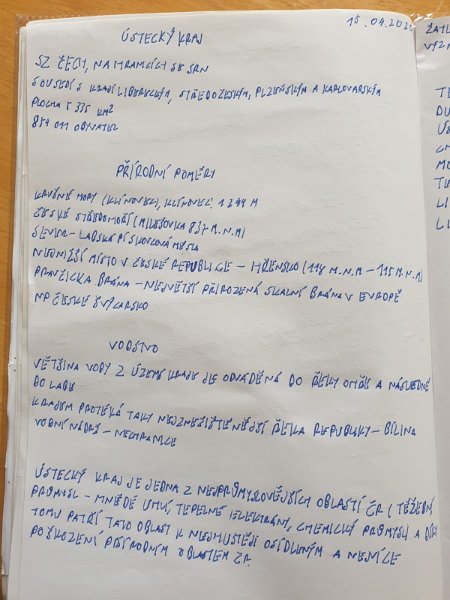 15.04.202
ÚSTECKÝ KRAJ
SZ ČECH, NA HRANICÍCH SE SRN
SOUSEDÍ S KRAJI LIBERECKÝM, STŘEDOČESKÝM, PLZEŇSKÝM A KARLOVARSKÝM
PLOCHA 5 335 KM²
OBYVATEL
PŘÍRODNÍ POMĚRY
KRUŠNÉ HORY (KLÍNOVEC), KLÍNOVEC 1244 M
ČESKÉ STŘEDOHOŘÍ (MILEŠOVKA 837 M.N.M)
SEVER - LABSKÁ PÍSKOVCOVÁ MĚSTA
NEJNIŽŠÍ MÍSTO V ČESKÉ REPUBLICE - HŘENSKO (114 M.N.M - 115 M.N.M)
PRAVČICKÁ BRÁNA - NEJVĚTŠÍ PŘIROZENÁ SKALNÍ BRÁNA V EVROPĚ
NP ČESKÉ ŠVÝCARSKO
VODSTVO
VĚTŠINA VODY Z ÚZEMÍ KRAJE JE ODVÁDĚNA DO ŘEKY OHŘE A NÁSLEDNĚ
DO LABE
KRAJEM PROTÉKÁ TAKY NEJZNEČIŠTĚNĚJŠÍ ŘEKA REPUBLIKY - BÍLINA
VODNÍ NÁDRŽ - NECHRANICE
ÚSTECKÝ KRAJ JE JEDNA Z NEJPRŮMYSLOVĚJŠÍCH OBLASTÍ ČR (TĚŽEBNÍ
PRŮMYSL - HNĚDÉ UHLÍ, TEPELNÉ ELEKTRÁRNY, CHEMICKÝ PRŮMYSL) A DÍKY
TOMU PATŘÍ TATO OBLAST K NEJHUSTĚJI OSÍDLENÝM A NEJVÍCE
POŠKOZENÍ PŘÍRODNÍM OBLASTEM ČR.